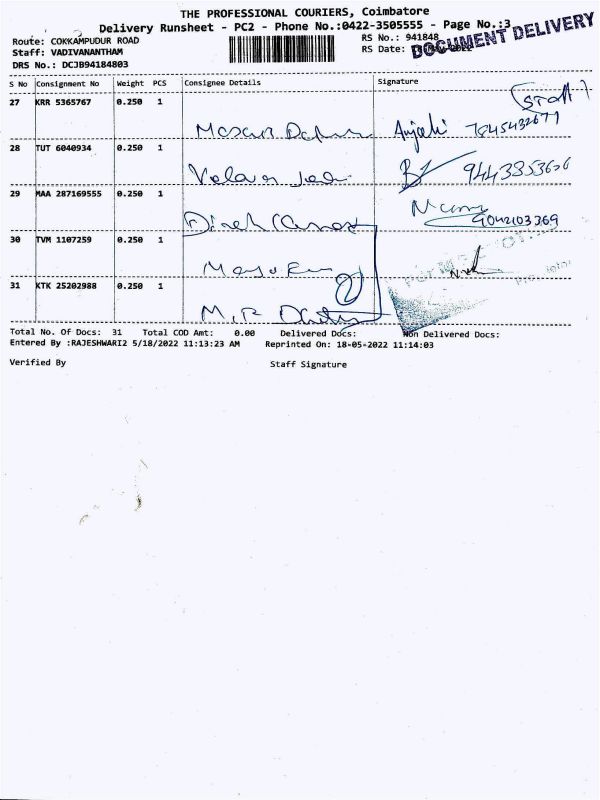 THE PROFESSIONAL COURIERS, Coimbatore
Delivery Runsheet - PC2 - Phone No.:0422-3505555 - Page No.:3
Route: COKKAMPUDUR ROAD
RS No.: 941848
Staff: VADIVANANTHAM
RS Date:
DOCUMENT DELIVERY
DRS No.: DCJB94184803
S No Consignment No Weight PCS Consignee Details Signature
(STAFF)
27 KRR 5365767 0.250 1
Anjali
28 TUT 6040934 0.250 1
9443853626
29 MAA 287169555 0.250 1
9042103369
30 TVM 1107259 0.250 1
31 KTK 25202988 0.250 1
M.R
Total No. Of Docs: 31 Total COD Amt: 0.00 Delivered Docs: Non Delivered Docs:
Entered By :RAJESHWARI2 5/18/2022 11:13:23 AM Reprinted On: 18-05-2022 11:14:03
Verified By Staff Signature